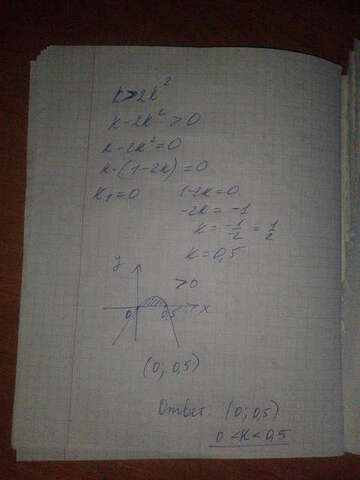 k>2k²
k-2k²>0
k-2k²=0
k·(1-2k)=0
k₁=0 1-2k=0
-2k=-1
k=-1/-2=1/2
k=0,5
y
>0
0 0,5 x
(0; 0,5)
Ответ: (0; 0,5)
0<k<0,5